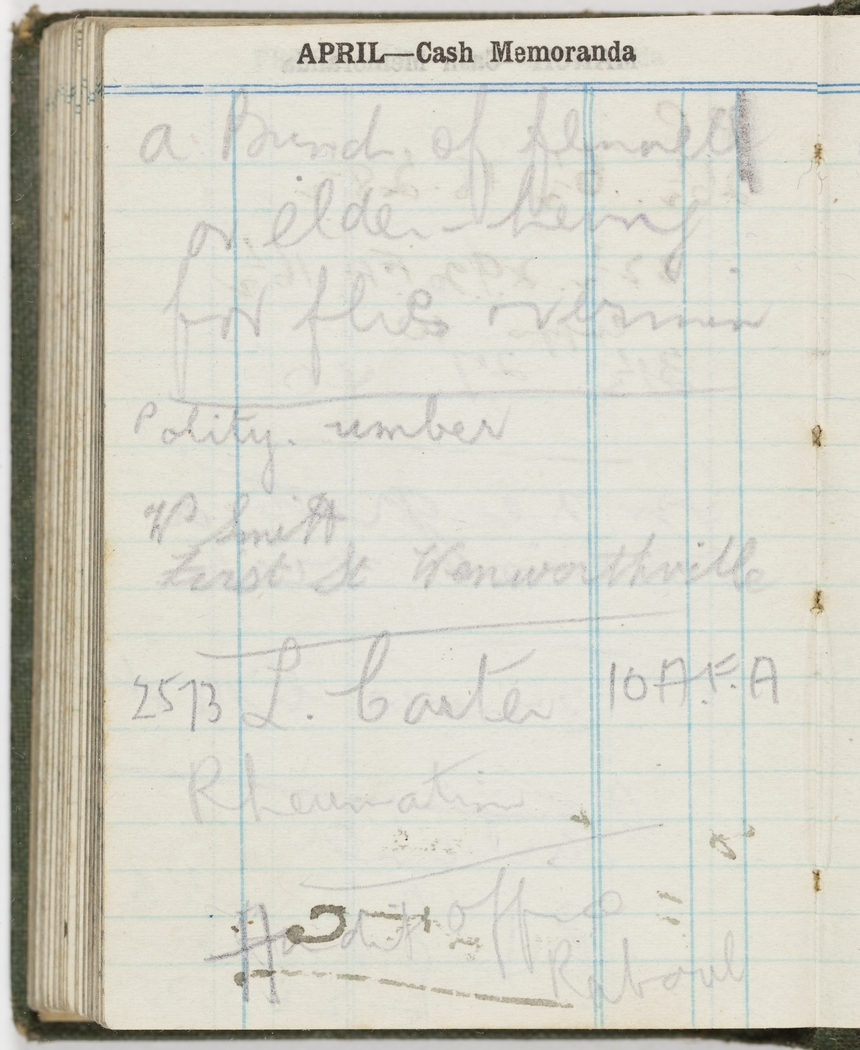 APRIL—Cash Memoranda
a Bunch of
or elder - being
for flies or vermin
Polity. umber
Wm Smith
First St Wenworthville
2573 L. Carter 10 A.F.A
Rheumatism
Audit Office
Rabaul